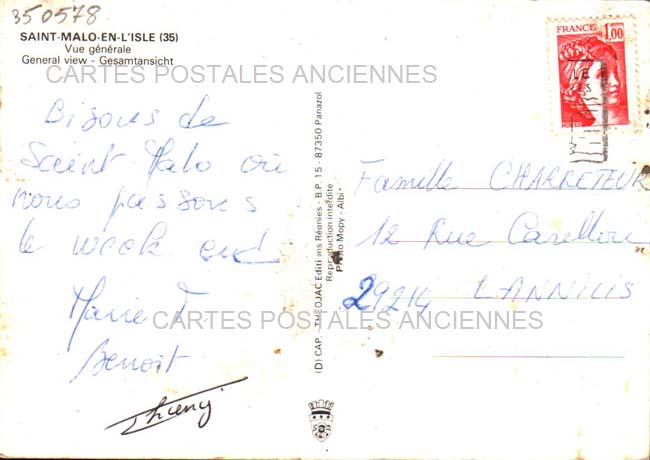 350578
SAINT-MALO-EN-L'ISLE (35)
Vue générale
General view - Gesamtansicht
CARTES POSTALES ANCIENNES
Bisous de
Saint Malo où
nous passons
le week end
Marie T
Benoit
Thierry
(D) CAP. - THEOJAC Editions Réunies - B.P. 15 - 87350 Panazol
Reproduction interdite
Photo Mopy - Albi
FRANCE
1,00
POSTES
Famille CHARRETEUR
12 Rue
29214 LANNILIS
CARTES POSTALES ANCIENNES